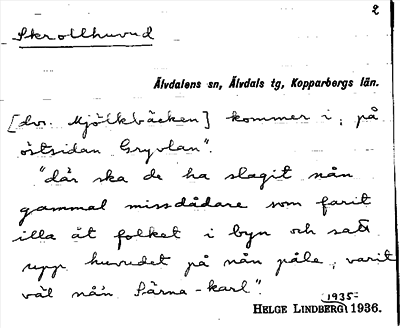 2
Skrollhuvud
Älvdalens sn, Älvdals tg, Kopparbergs län.
[dvs. Mjölkbäcken] kommer i, på
östsidan Gryvlan".
"där ska de ha slagit nån
gammal missdådare som farit
illa åt folket i byn och satt
upp huvudet på nån påle, varit
väl nå'n Särna-karl".
1935-
HELGE LINDBERG 1936.